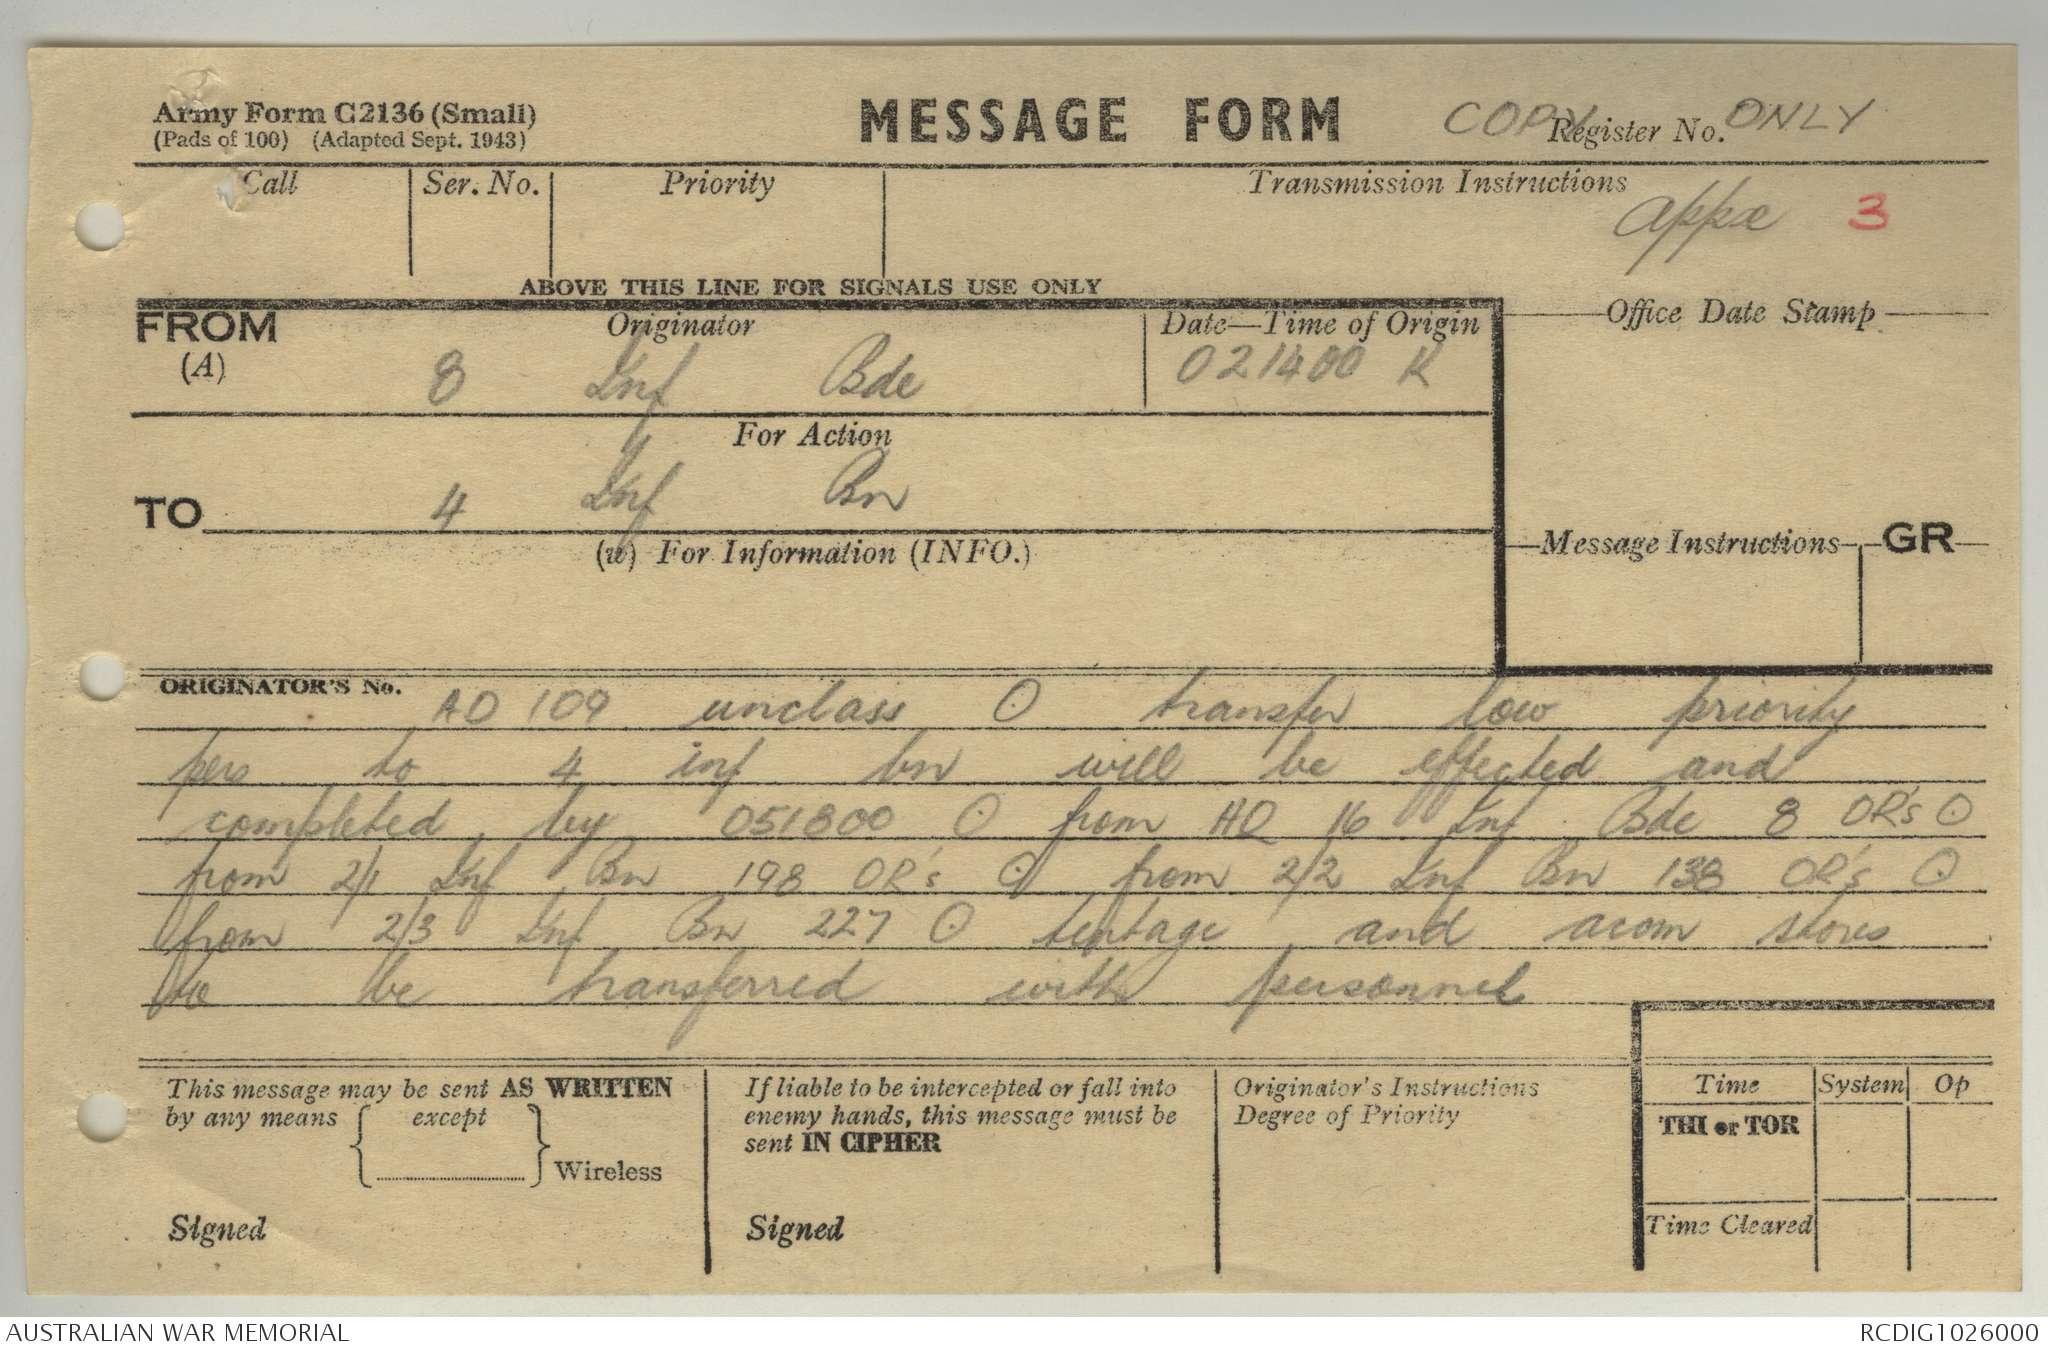 Army Form C2136 (Small)
(Pads of 100) (Adapted Sept. 1943)
MESSAGE FORM
COPY ONLY
Register No.
Call
Ser. No.
Priority
Transmission Instructions
Appx 3
ABOVE THIS LINE FOR SIGNALS USE ONLY
FROM
(A)
Originator
8 Inf Bde
Date—Time of Origin
021400 K
Office Date Stamp
For Action
TO
4 Inf Bn
(w) For Information (INFO.)
Message Instructions
GR
ORIGINATOR'S No.
AO 109 unclass O transfer low priority
pers to 4 inf bn will be effected and
completed by 051800 O from HQ 16 Inf Bde 8 OR's O
from 2/1 Inf Bn 198 OR's O from 2/2 Inf Bn 138 OR's O
from 2/3 Inf Bn 227 O tentage and acom stores
be transferred with personnel
This message may be sent AS WRITTEN
by any means { except
} Wireless
Signed
If liable to be intercepted or fall into
enemy hands, this message must be
sent IN CIPHER
Signed
Originator's Instructions
Degree of Priority
Time
System
Op
THI or TOR
Time Cleared
AUSTRALIAN WAR MEMORIAL
RCDIG1026000